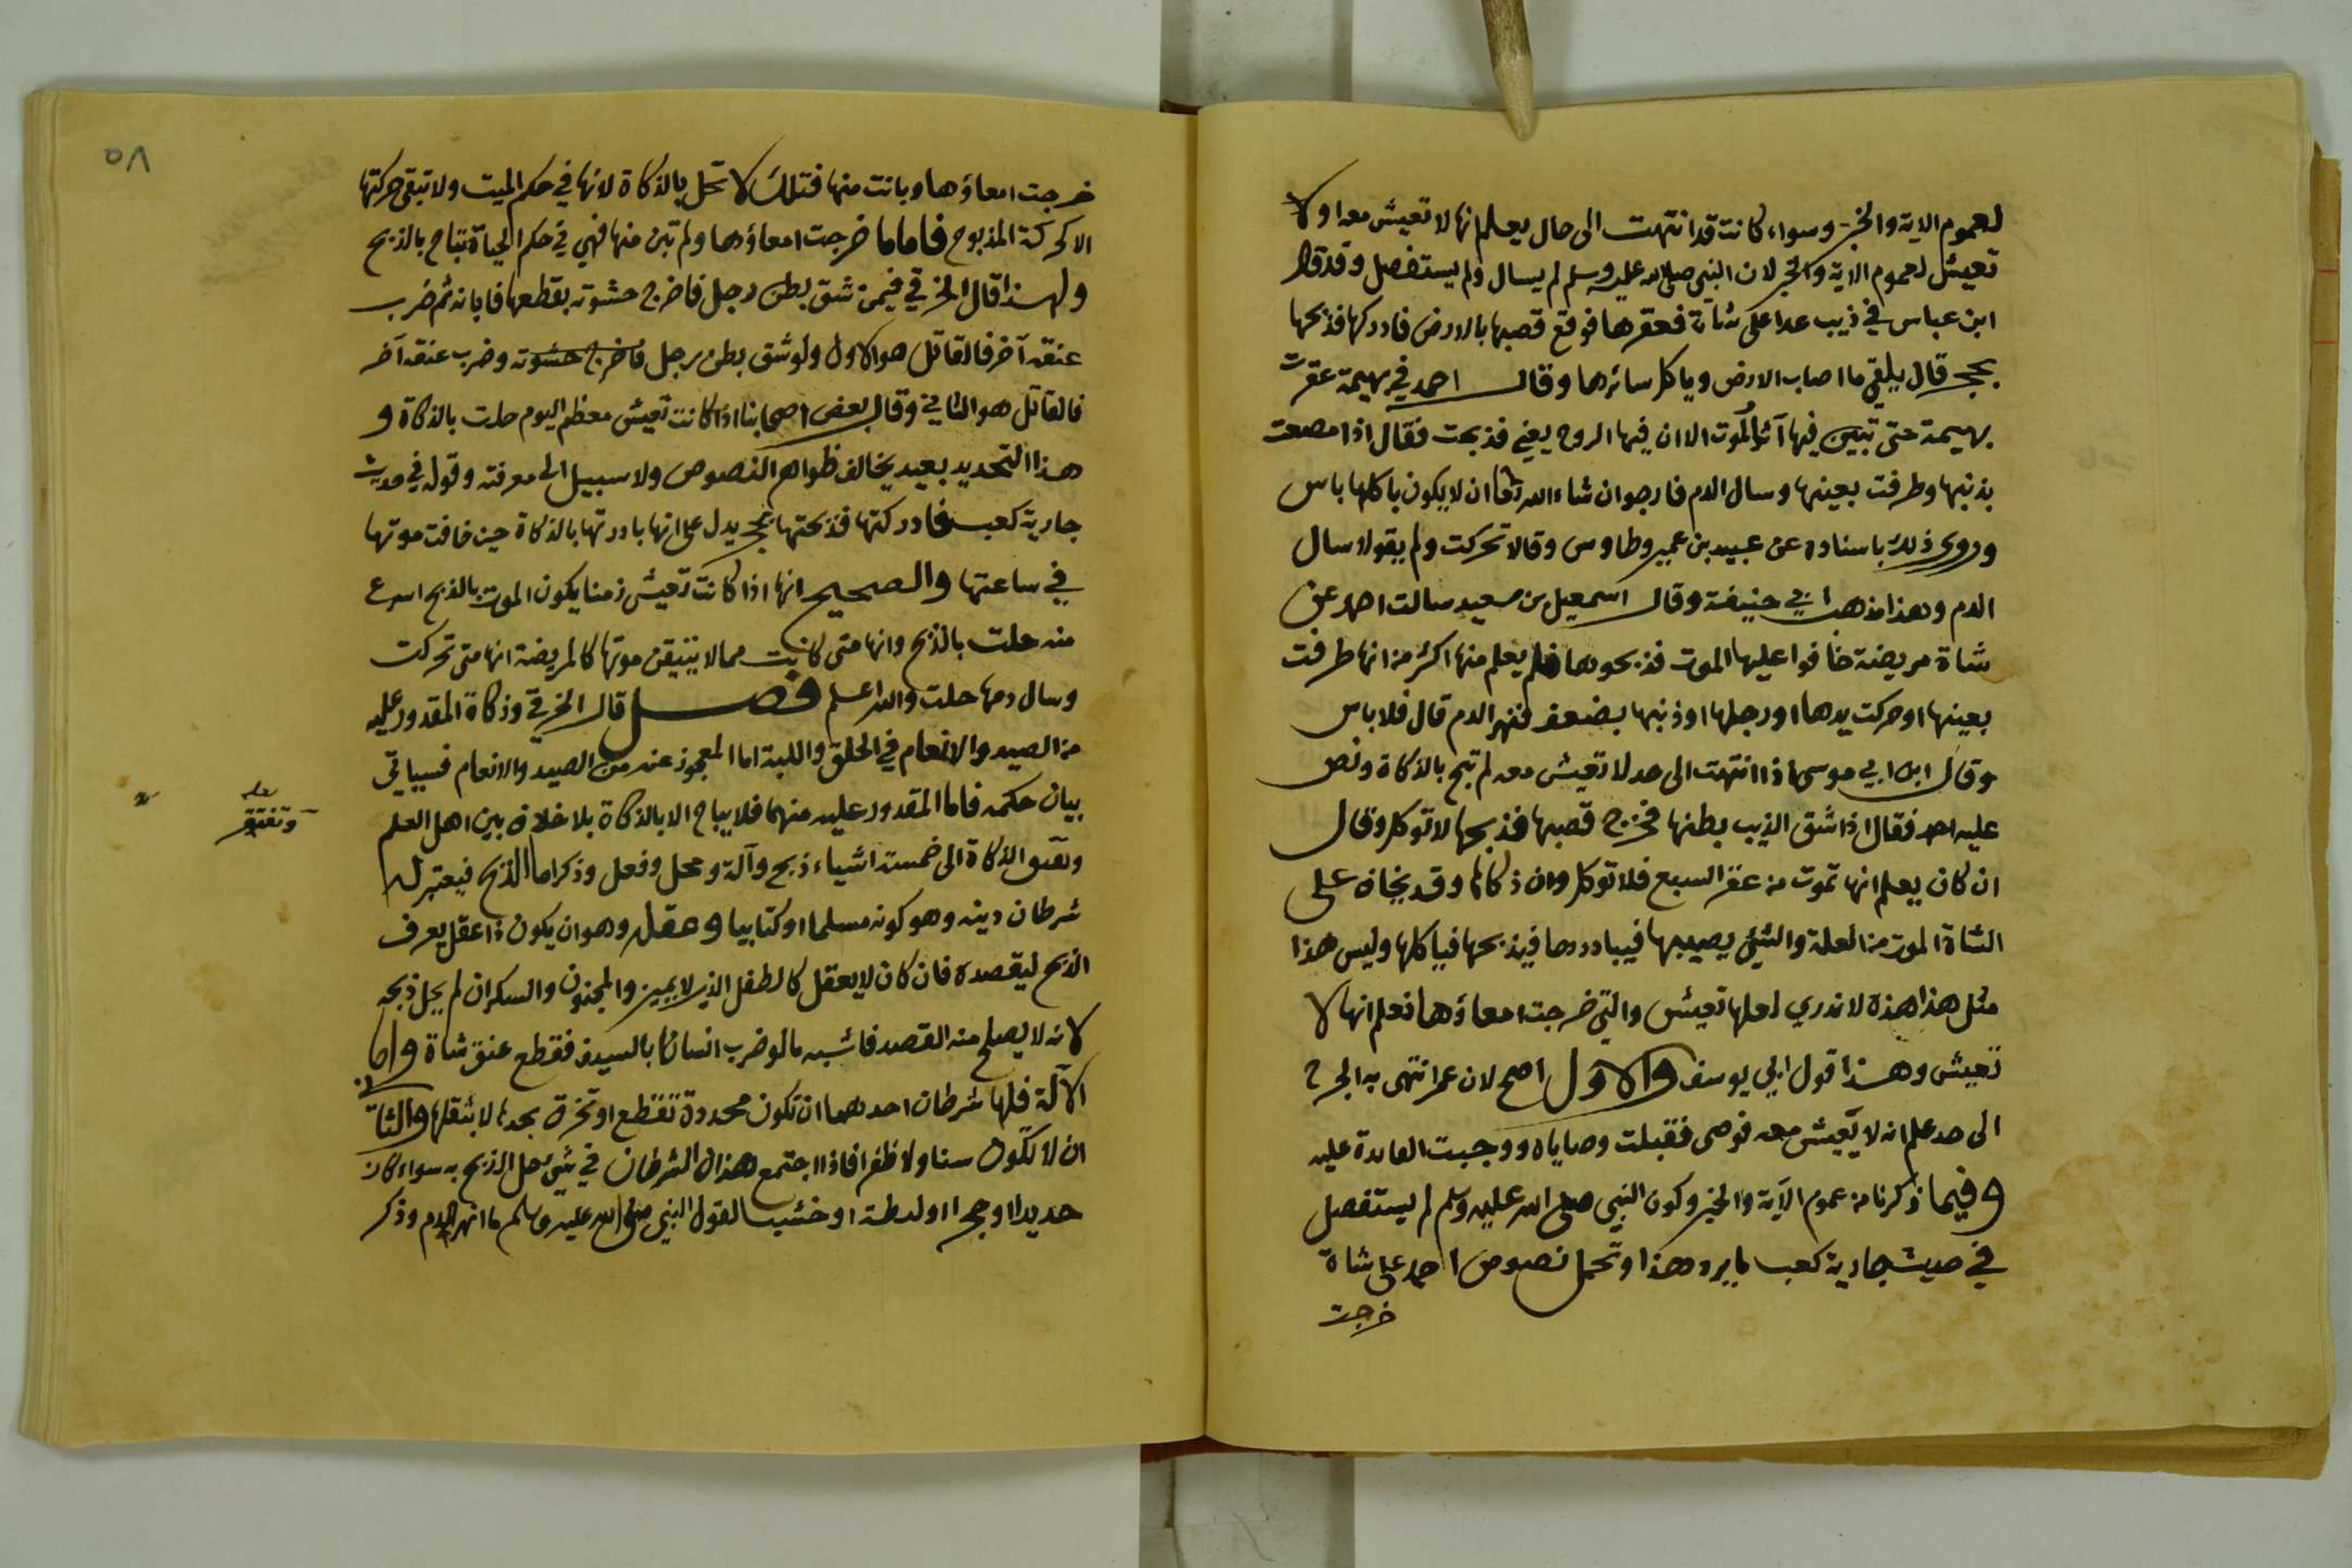 لعموم الاية والخبر وسواء كانت قد انتهت الى حال يعلم انها لا تعيش معه او لا
تعيش لعموم الاية والخبر لان النبي صلى الله عليه وسلم لم يسال ولم يستفصل وقد قال
ابن عباس في ذيب عدا على شاة فعقرها فوقع قصبها بالارض فادركها فذبحها
بحجر قال يلقي ما اصاب الارض وياكل سائرها وقال احمد في بهيمة عقرت
بهيمة حتى تبين فيها آثار الموت الا ان فيها الروح يعني فذبحت فقال اذا مصعت
بذنبها وطرفت بعينها وسال الدم فارجوان شاء الله تعا ان لا يكون باكلها باس
وروى ذلك باسناده عن عبيد بن عمير وطاوس وقالا تحركت ولم يقولا سال
الدم وهذا مذهب ابي حنيفة وقال اسمعيل بن سعيد سالت احمد عن
شاة مريضة خافوا عليها الموت فذبحوها فلم يعلم منها اكثر من انها طرفت
بعينها او حركت يدها او رجلها او ذنبها بضعف فنهر الدم قال فلا باس
وقال ابن ابي موسى اذا انتهت الى حد لا تعيش معه لم تبح بالذكاة ونص
عليه احمد فقال اذا شق الذيب بطنها فخرج قصبها فذبحها لا توكل وقال
ان كان يعلم انها تموت من عقر السبع فلا توكل وان ذكاها وقد يخاف على
الشاة الموت من العلة والشيئ يصيبها فيبادرها فيذبحها فياكلها وليس هذا
مثل هذا هذه لا ندري لعلها تعيش والتي خرجت امعاؤها نعلم انها لا
تعيش وهذا قول ابي يوسف والاول اصح لان عمر انتهى به الجرح
الى حد علم انه لا يعيش معه فوصى فقبلت وصاياه ووجبت العبادة عليه
وفيما ذكرنا من عموم الآية والخبر وكون النبي صلى الله عليه وسلم لم يستفصل
في حديث جارية كعب ما يرد هذا وتحمل نصوص احمد على شاة
خرجت
٥٨
خرجت امعاؤها وبانت منها فتلك لا تحل بالذكاة لانها في حكم الميت ولا تبقى حركتها
الا كركة المذبوح فاما ما خرجت امعاؤها ولم تبن منها فهي في حكم الحياة تباح بالذبح
ولهذا قال الخرقي فيمن شق بطن رجل فاخرج حشوته بقطعها فابانه ثم ضرب
عنقه آخر فالقاتل هو الاول ولو شق بطن رجل فاخرج حشوته وضرب عنقه آخر
فالقاتل هو الثاني وقال بعض اصحابنا اذا كانت تعيش معظم اليوم حلت بالذكاة و
هذا التحديد بعيد يخالف ظواهر النصوص ولا سبيل الى معرفته وقوله في حديث
جارية كعب فادركتها فذبحتها بحجر يدل على انها بادرتها بالذكاة حين خافت موتها
في ساعتها والصحيح انها اذا كانت تعيش زمنا يكون الموت بالذبح اسرع
منه حلت بالذبح وانها متى كانت مما لا يتيقن موتها كالمريضة انها متى تحركت
وسال دمها حلت والله اعلم فصل قال الخرقي وذكاة المقدور عليه
من الصيد والانعام في الحلق واللبة اما المعجوز عنه من الصيد والانعام فسياتي
بيان حكمه فاما المقدور عليه منهما فلا يباح الا بالذكاة بلا خلاف بين اهل العلم
وتفتقر الذكاة الى خمسة اشياء ذبح وآلة ومحل وفعل وذكر اما الذبح فيعتبر له
لعله
وتفتقر
شرطان دينه وهو كونه مسلما او كتابيا وعقله وهو ان يكون ذا عقل يعرف
الذبح ليقصده فان كان لا يعقل كالطفل الذي لا يميز والمجنون والسكران لم يحل ذبحه
لانه لا يصلح منه القصد فاشبه ما لو ضرب انسانا بالسيف فقطع عنق شاة واما
الآلة فلها شرطان احدهما ان تكون محددة تقطع او تخرق بحدها لا بثقلها والثاني
ان لا تكون سنا ولا ظفرا فاذا اجتمع هذان الشرطان في شيئ حل الذبح به سواء كان
حديدا او حجرا او لطة او خشبا لقول النبي صلى الله عليه وسلم ما انهر الدم وذكر